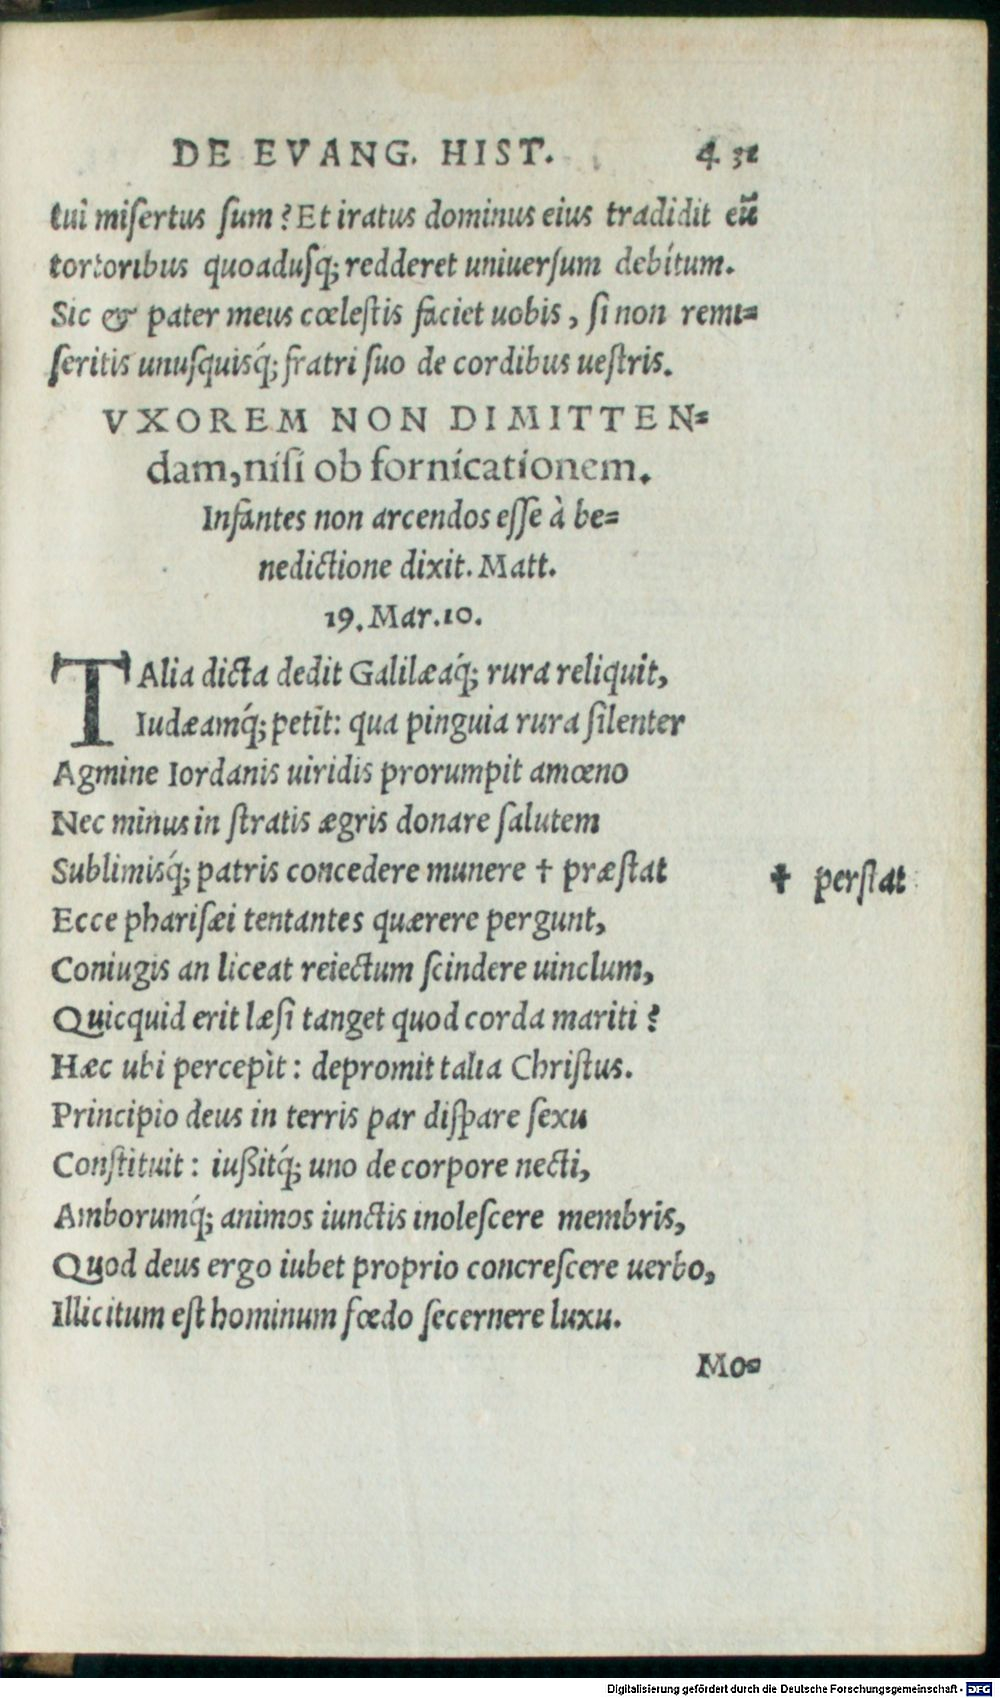 DE EVANG. HIST. 431
tui misertus sum? Et iratus dominus eius tradidit eũ
tortoribus quoadusq; redderet uniuersum debitum.
Sic & pater meus cœlestis faciet uobis, si non remi=
seritis unusquisq́; fratri suo de cordibus uestris.
VXOREM NON DIMITTEN=
dam, nisi ob fornicationem.
Infantes non arcendos esse à be=
nedictione dixit. Matt.
19. Mar. 10.
TAlia dicta dedit Galilæaq́; rura reliquit,
Iudæamq́; petit: qua pinguia rura silenter
Agmine Iordanis uiridis prorumpit amœno
Nec minus in stratis ægris donare salutem
Sublimisq́; patris concedere munere † præstat
† perstat
Ecce pharisæi tentantes quærere pergunt,
Coniugis an liceat reiectum scindere uinclum,
Quicquid erit læsi tanget quod corda mariti?
Hæc ubi percepit: depromit talia Christus.
Principio deus in terris par dispare sexu
Constituit: iußitq́; uno de corpore necti,
Amborumq́; animos iunctis inolescere membris,
Quod deus ergo iubet proprio concrescere uerbo,
Illicitum est hominum fœdo secernere luxu.
Mo=
Digitalisierung gefördert durch die Deutsche Forschungsgemeinschaft - DFG